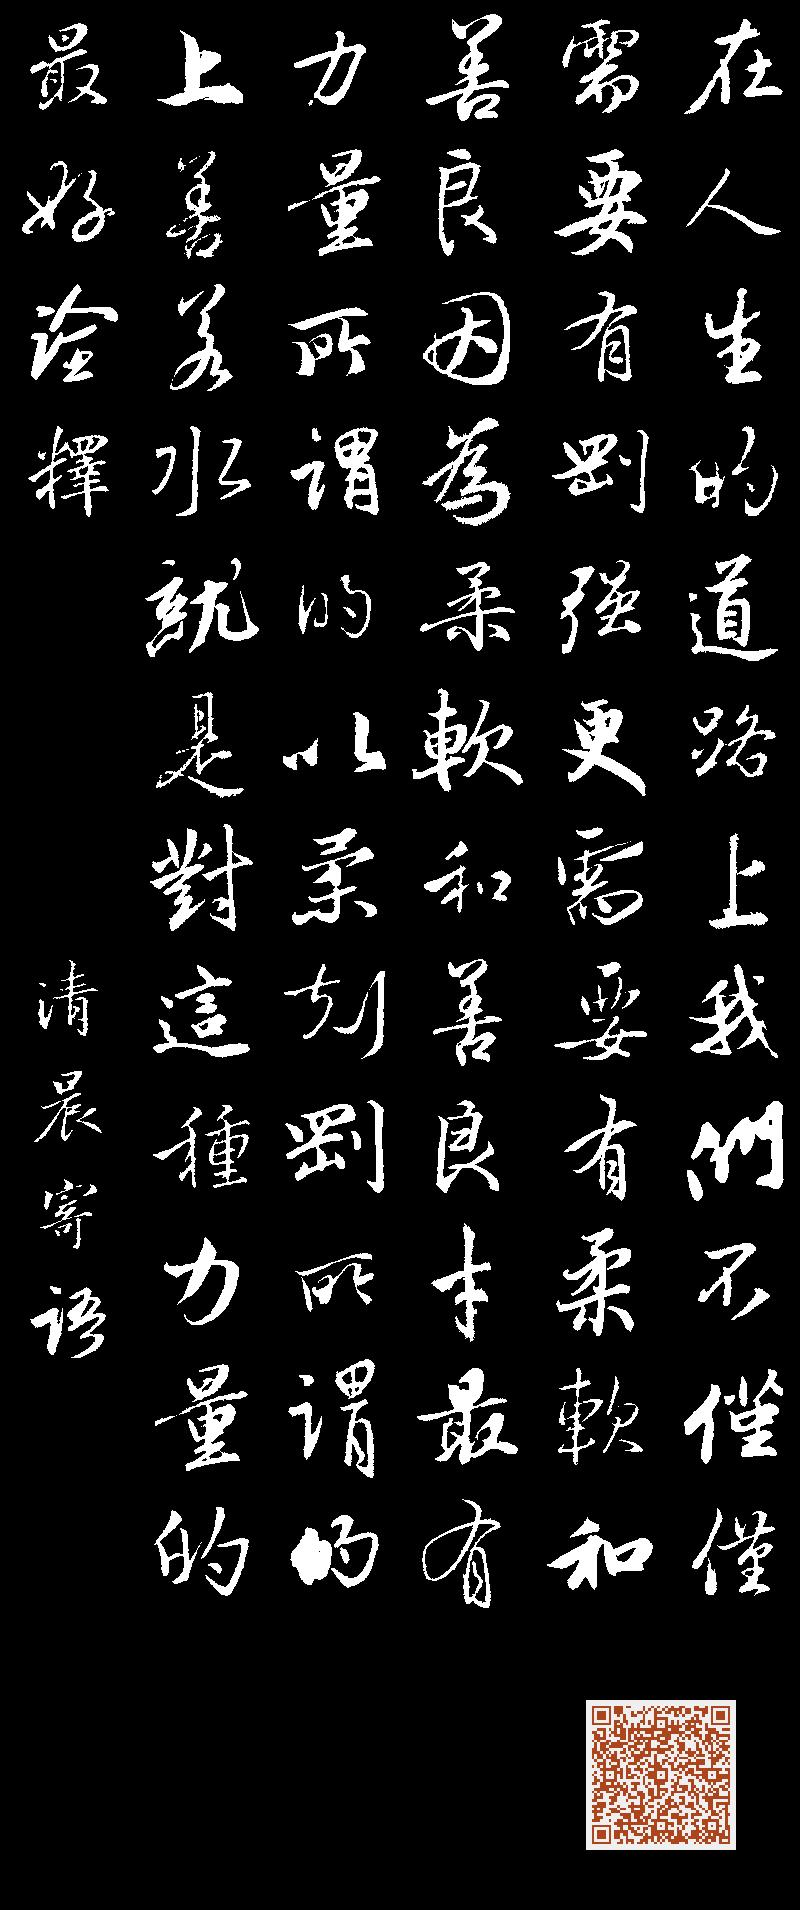 在人生的道路上我們不僅僅
需要有剛强更需要有柔軟和
善良因為柔軟和善良才最有
力量所謂的以柔克剛所謂的
上善若水就是對這種力量的
最好詮釋
清晨寄语